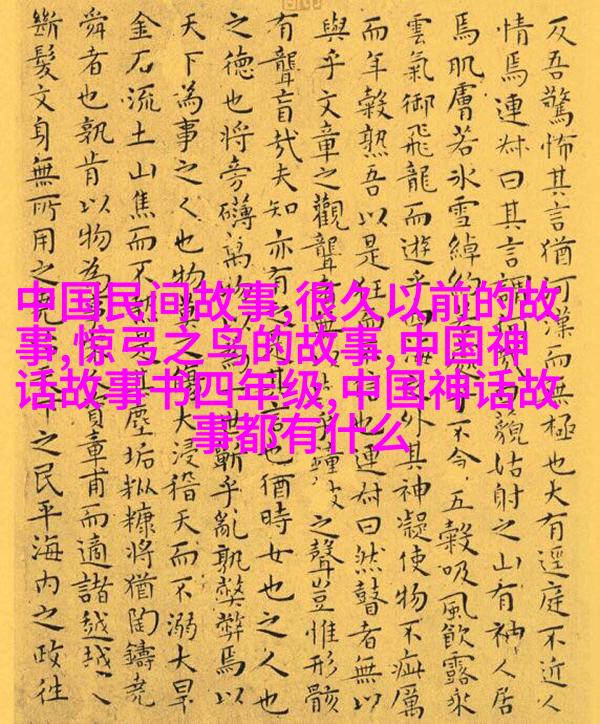 中国民间故事,很久以前的故
事,惊弓之鸟的故事,中国神
话故事书四年级,中国神话故
事都有什么
反吾驚怖其言猶河漢而無極也大有逕庭不近人
情焉連叔曰其言謂藐姑射之山有神人居
焉肌膚若冰雪綽約不食五穀吸風飲露乘
雲氣御飛龍而遊乎海外其神凝使物不疵厲
而年穀熟吾以是狂而也連叔曰然瞽者無以
與乎文章之觀聾者無乎鐘鼓之聲豈惟形骸
有聾盲哉夫知亦有之言也猶時女也之人也
之德也將旁礴萬物以世蘄乎亂孰弊弊焉以
天下為事之人也物莫之大浸稽天而不溺大旱
金石流土山焦而不其塵垢粃糠將猶陶鑄堯
舜者也孰肯以物為人資章甫而適諸越越人
斷髮文身無所用之堯之民平海內之政往